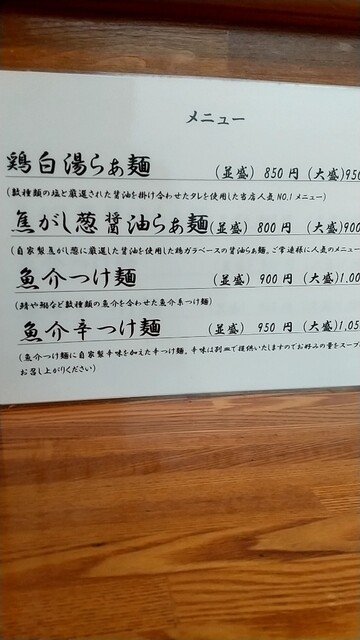 メニュー
鶏白湯らぁ麺 (並盛) 850円 (大盛)950
(数種類の塩と厳選された醤油を掛け合わせたタレを使用した当店人気NO.1メニュー)
焦がし葱醤油らぁ麺(並盛) 800円 (大盛)900
(自家製焦がし葱に厳選した醤油を使用した鶏ガラベースの醤油らぁ麺。ご常連様に人気のメニュー
魚介つけ麺 (並盛) 900円 (大盛)1.00
(鯖や鰯など数種類の魚介を合わせた魚介系つけ麺)
魚介辛つけ麺 (並盛) 950円 (大盛)1.05
(魚介つけ麺に自家製辛味を加えた辛つけ麺。辛味は別皿で提供いたしますのでお好みの量をスープ
お召し上がりください)